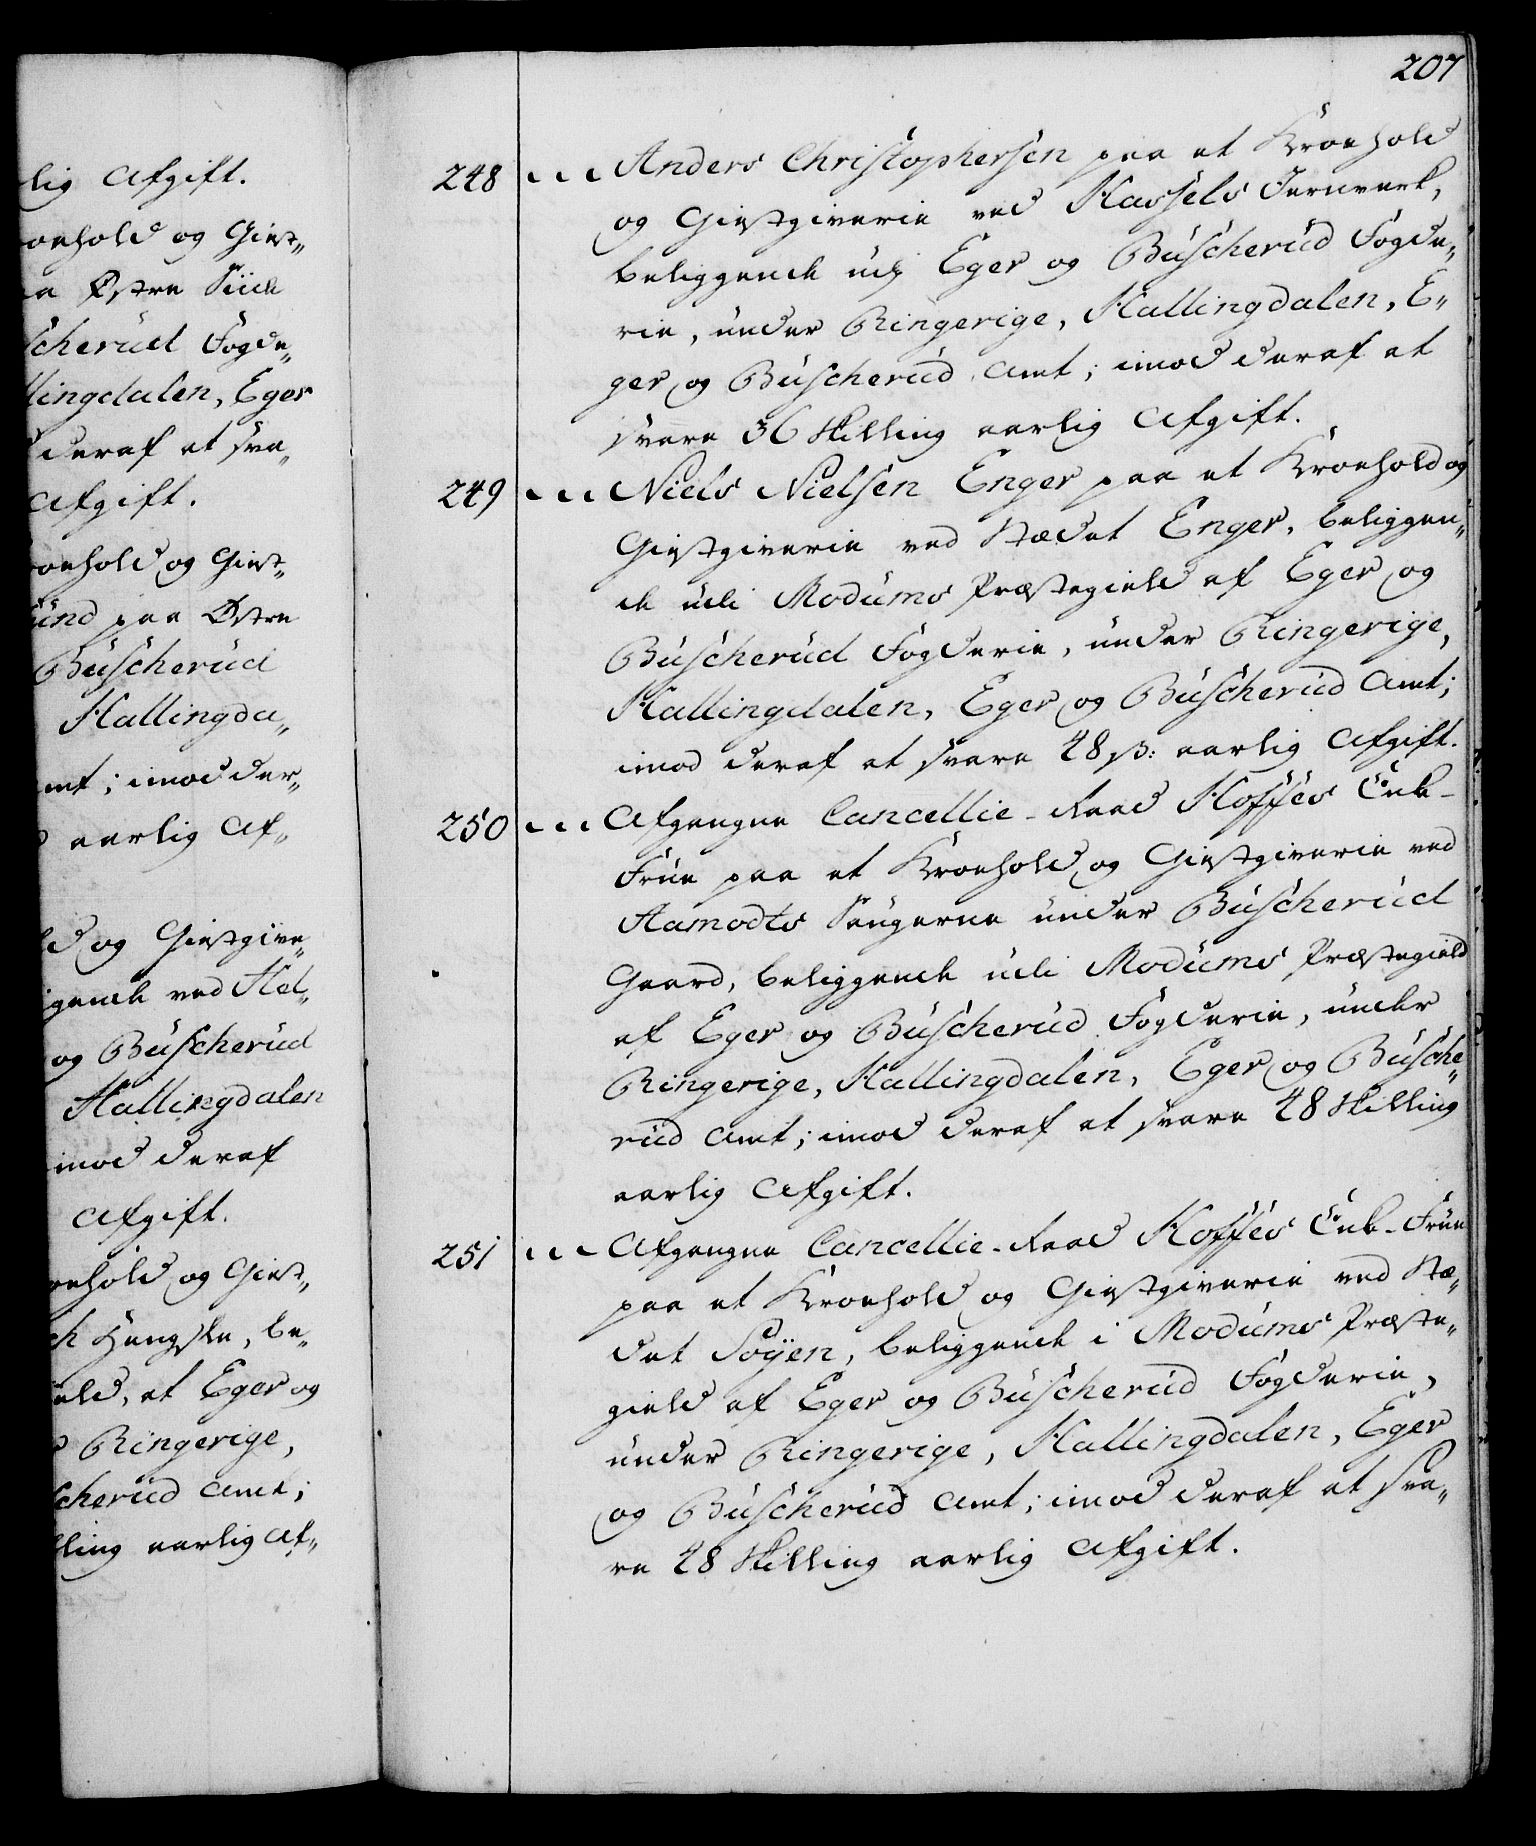 lig Afgift.
onhold og Giest„
a Østre Siide
scherüd Fogde„
lingdalen, Eger
deraf at sva„
Afgift.
onhold og Giest„
ünd paa Østre
Büscherüd
Hallingda„
mt; imod der„
aarlig Af„
d og Giestgive„
gende ved Hel„
og Büscherüd
Hallingdalen
imod deraf
Afgift.
onhold og Giest„
be„
ield, af Eger og
Ringerige,
scherüd Amt;
lling aarlig Af„
207
248 Anders Christophersen paa et Kroehold
og Giestgiverie ved Hassels Jernverk,
beliggende udj Eger og Büscherüd Fogde„
rie, ünder Ringerige, Hallingdalen, E„
ger og Büscherüd Amt; imod deraf at
svare 36 Skilling aarlig Afgift.
249 Niels Nielsen Enger paa et Kroehold og
Giestgiverie ved Stædet Enger, beliggen„
de udi Modums Præstegield af Eger og
Büscherüd Fogderie, ünder Ringerige,
Hallingdalen, Eger og Büscherüd Amt;
imod deraf at svare 48 ß: aarlig Afgift.
250 Afgangne Cancellie-Raad Hoffes Enke-
Früe paa et Kroehold og Giestgiverie ved
Aamodts Saugerne ünder Büscherüd
Gaard, beliggende udi Modums Præstegield
af Eger og Büscherüd Fogderie, ünder
Ringerige, Hallingdalen, Eger og Büsche„
rüd Amt; imod deraf at svare 48 Skilling
aarlig Afgift.
251 Afgangne Cancellie-Raad Hoffes Enke-Früe
paa et Kroehold og Giestgiverie ved Stæ„
det Soÿen, beliggende i Modums Præste„
gield af Eger og Büscherüd Fogderie,
ünder Ringerige, Hallingdalen, Eger
og Büscherüd Amt; imod deraf at sva„
re 48 Skilling aarlig Afgift.